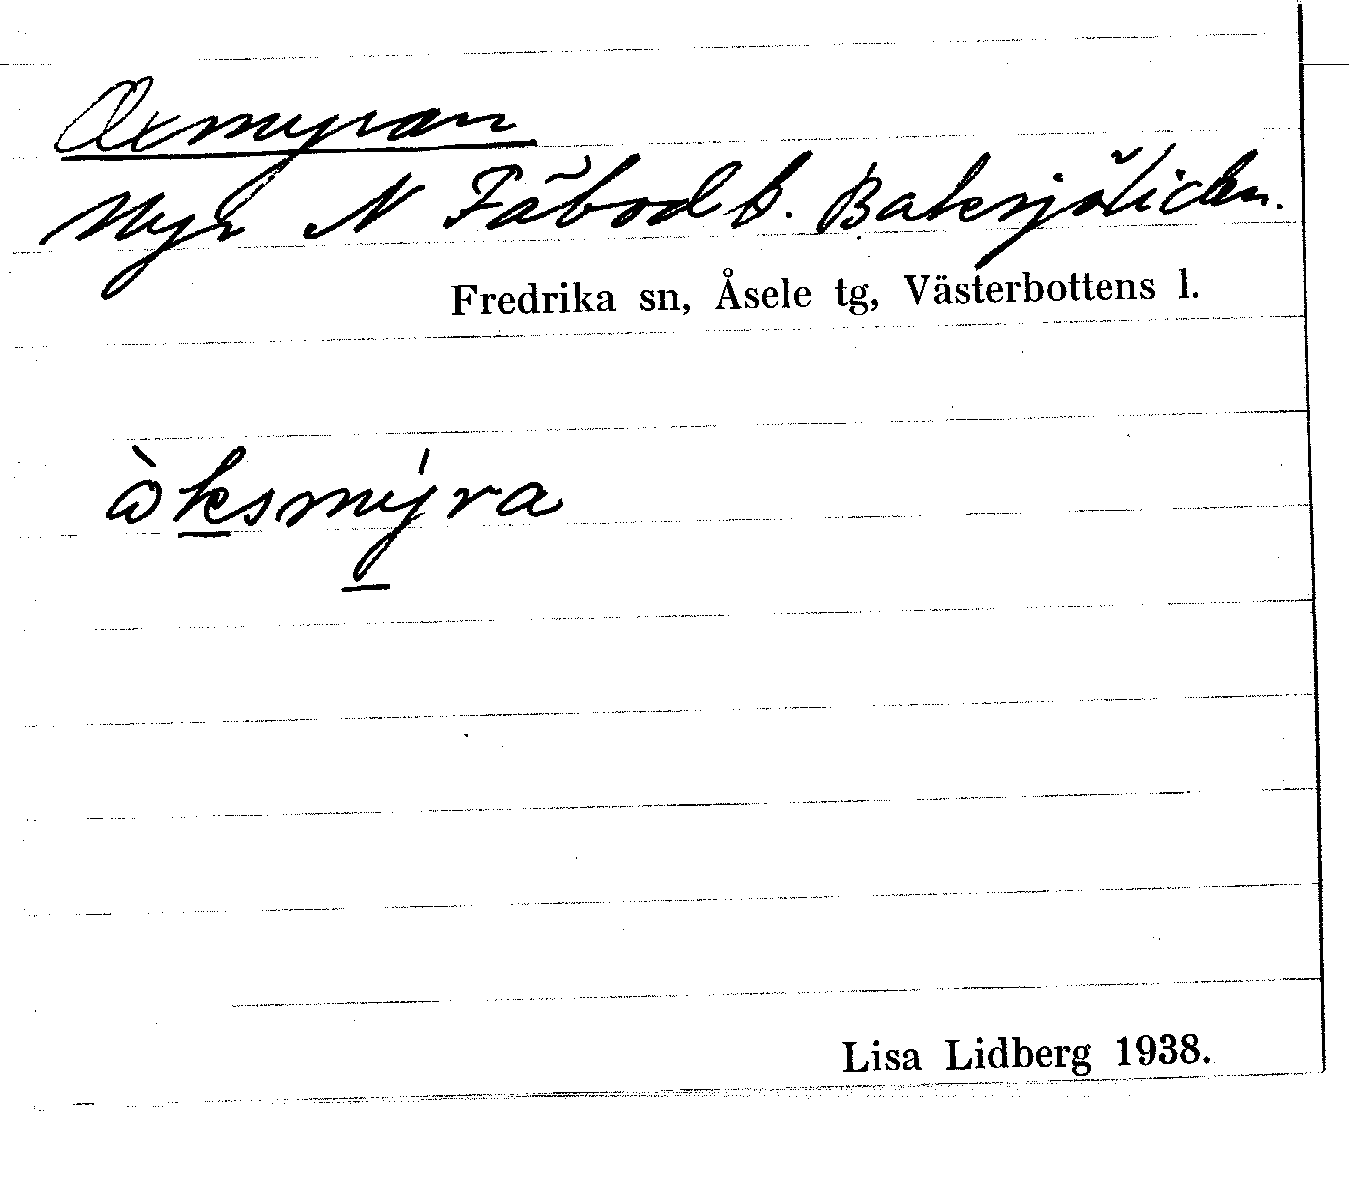 Oxmyran
Myr N Fäbod b. Baksjöliden.
Fredrika sn, Åsele tg, Västerbottens l.
òksmýra
Lisa Lidberg 1938.